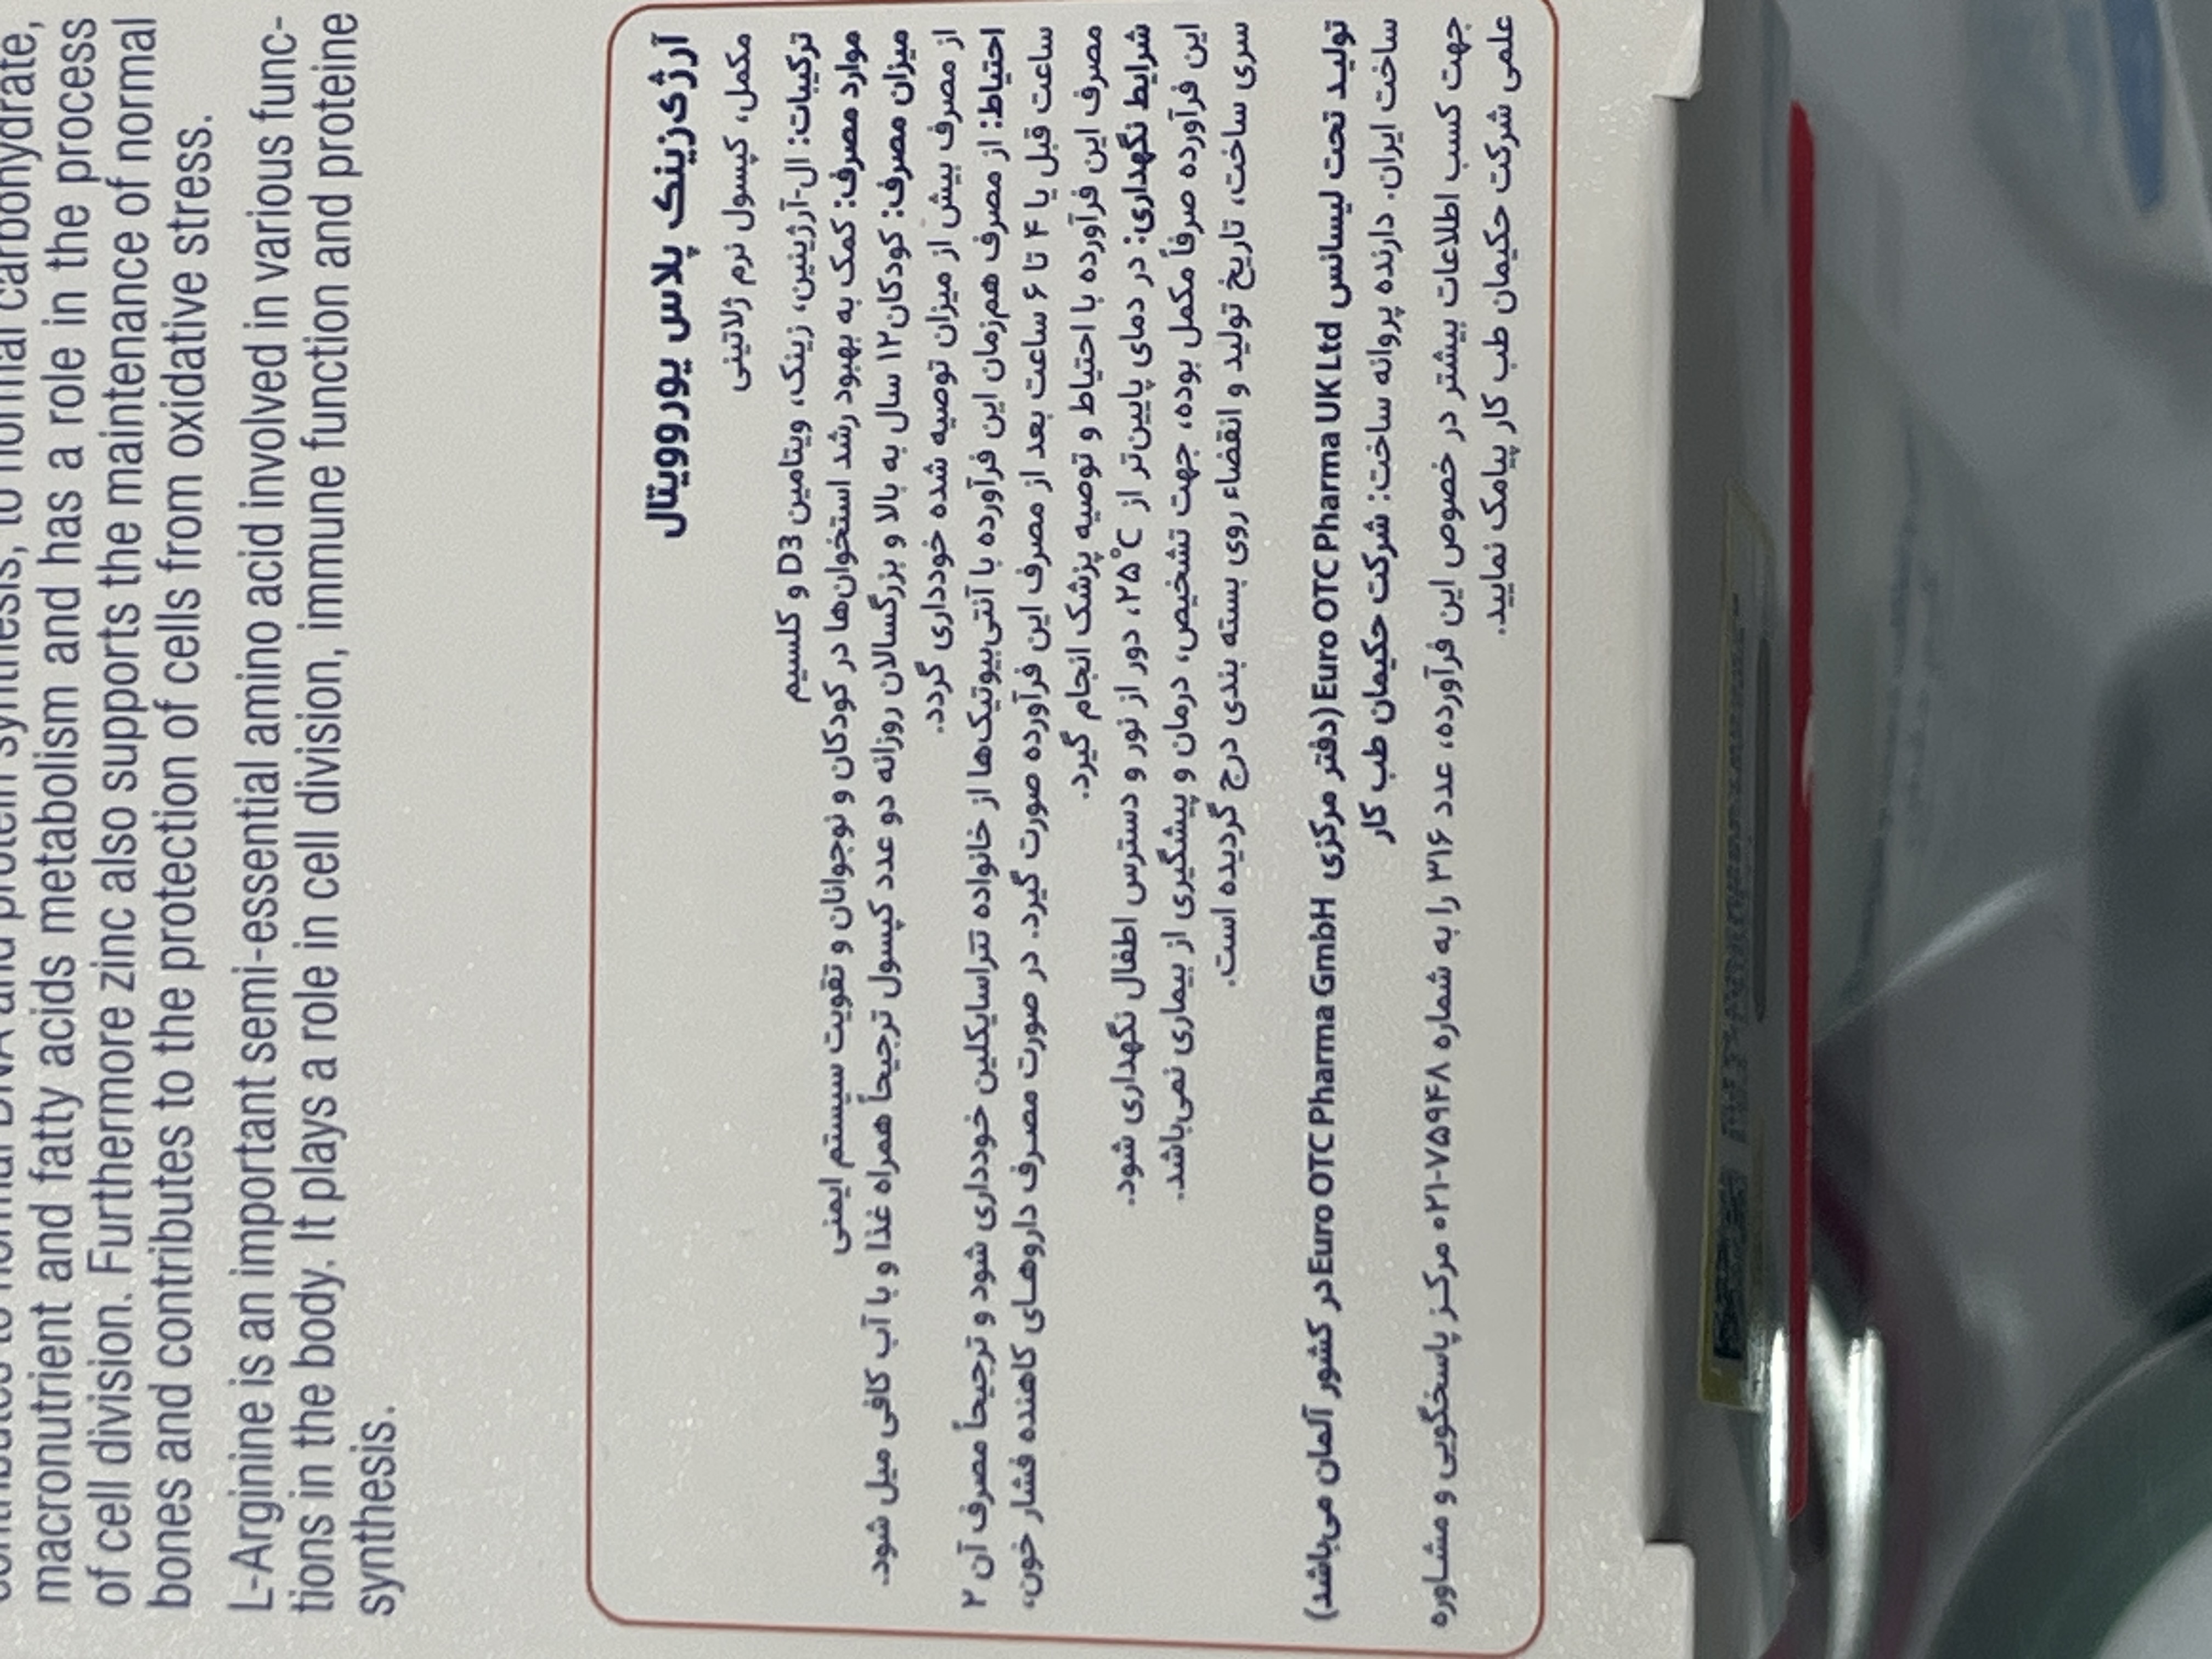 macronutrient and fatty acids metabolism and has a role in the process
of cell division. Furthermore zinc also supports the maintenance of normal
bones and contributes to the protection of cells from oxidative stress.
L-Arginine is an important semi-essential amino acid involved in various func-
tions in the body. It plays a role in cell division, immune function and proteine
synthesis.
آرژی‌زینک پلاس یوروویتال
مکمل، کپسول نرم ژلاتینی
ترکیبات: ال-آرژینین، زینک، ویتامین D3 و کلسیم
موارد مصرف: کمک به بهبود رشد استخوان‌ها در کودکان و نوجوانان و تقویت سیستم ایمنی
میزان مصرف: کودکان ۱۲ سال به بالا و بزرگسالان روزانه دو عدد کپسول ترجیحاً همراه غذا و با آب کافی میل شود.
از مصرف بیش از میزان توصیه شده خودداری گردد.
احتیاط: از مصرف هم‌زمان این فرآورده با آنتی‌بیوتیک‌ها از خانواده تتراسایکلین خودداری شود و ترجیحاً مصرف آن ۲
ساعت قبل یا ۴ تا ۶ ساعت بعد از مصرف این فرآورده صورت گیرد. در صورت مصرف داروهای کاهنده فشار خون،
مصرف این فرآورده با احتیاط و توصیه پزشک انجام گیرد.
شرایط نگهداری: در دمای پایین‌تر از ۲۵°C، دور از نور و دسترس اطفال نگهداری شود.
این فرآورده صرفاً مکمل بوده، جهت تشخیص، درمان و پیشگیری از بیماری نمی‌باشد.
سری ساخت، تاریخ تولید و انقضاء روی بسته بندی درج گردیده است.
تولید تحت لیسانس Euro OTC Pharma UK Ltd (دفتر مرکزی Euro OTC Pharma GmbH در کشور آلمان می‌باشد)
ساخت ایران. دارنده پروانه ساخت: شرکت حکیمان طب کار
جهت کسب اطلاعات بیشتر در خصوص این فرآورده، عدد ۳۱۶ را به شماره ۷۵۹۴۸-۰۲۱ مرکز پاسخگویی و مشاوره
علمی شرکت حکیمان طب کار پیامک نمایید.